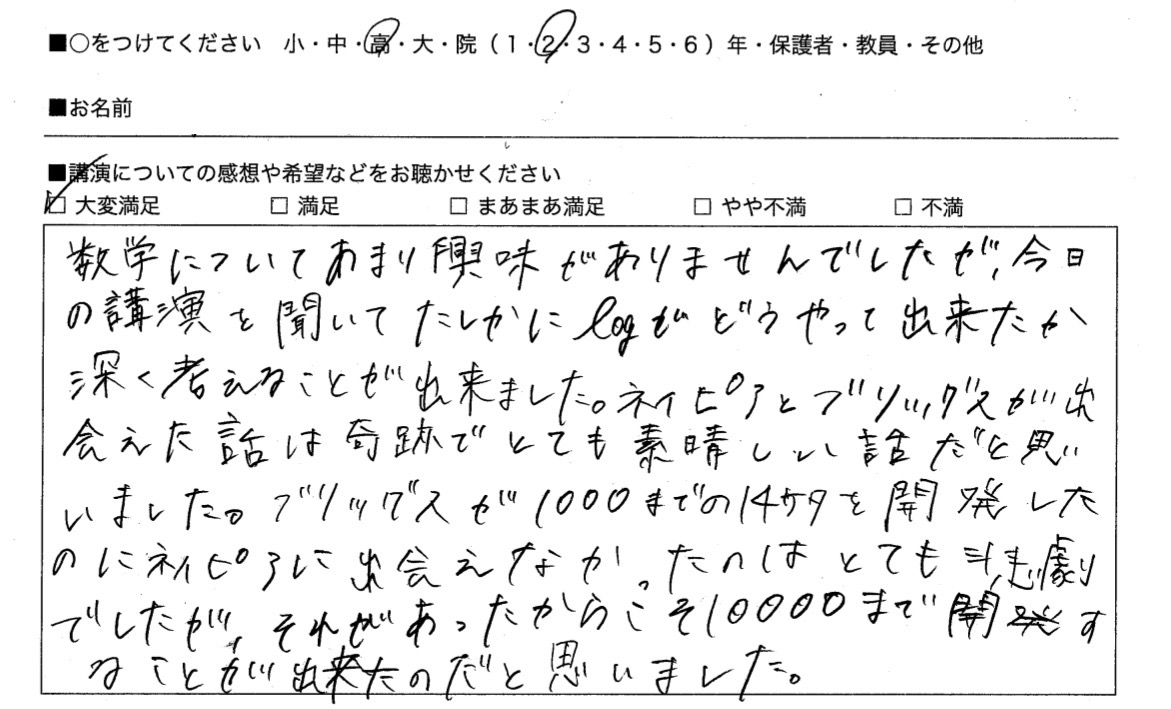 ■○をつけてください 小・中・高・大・院(1・2・3・4・5・6)年・保護者・教員・その他
■お名前
■講演についての感想や希望などをお聴かせください
□ 大変満足 □ 満足 □ まあまあ満足 □ やや不満 □ 不満
数学についてあまり興味がありませんでしたが、今日
の講演を聞いてたしかにlogがどうやって出来たか
深く考えることが出来ました。ネイピアとブリッグスが出
会えた話は奇跡でとても素晴しい話だと思い
いました。ブリッグスが1000までの14ケタを開発した
のにネイピアに出会えなかったのはとても悲劇
でしたが、それがあったからこそ10000まで開発す
ることが出来たのだと思いました。